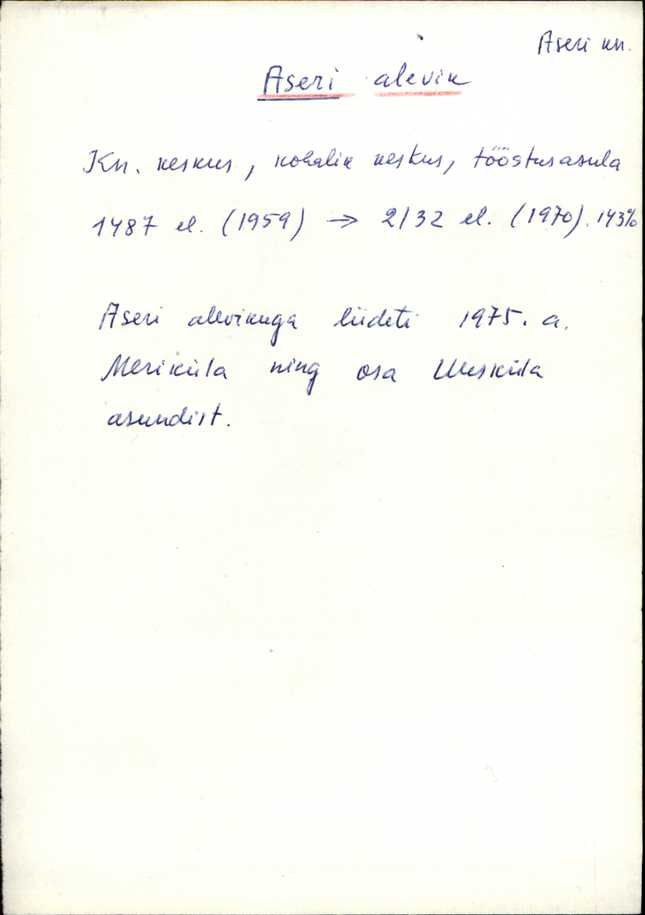 Aseri kn.
Aseri alevik
Kn. keskus, kohalik keskus, tööstusasula
1487 el. (1959) → 2132 el. (1970). 143%
Aseri alevikuga liideti 1975. a.
Meriküla ning osa Uusküla
asundist.